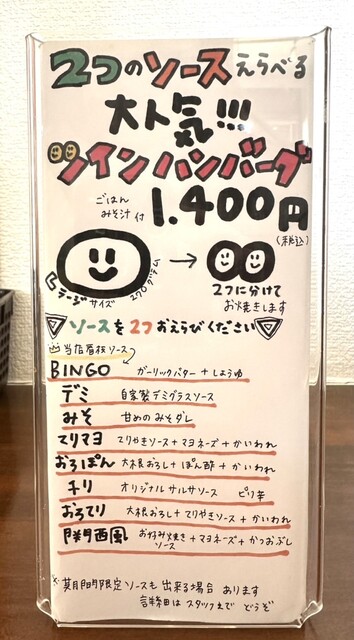 2つのソースえらべる
大人気!!!
ツインハンバーグ
ごはん
みそ汁 付
1.400円
(税込)
ラージサイズ 270グラム
→
2つに分けて
お焼きします
ソースを2つおえらびください
当店看板ソース
BINGO ガーリックバター + しょうゆ
デミ 自家製デミグラスソース
みそ 甘めのみそダレ
てりマヨ てりやきソース + マヨネーズ + かいわれ
おろぽん 大根おろし + ぽん酢 + かいわれ
チリ オリジナルサルサソース ピリ辛
おろてり 大根おろし + てりやきソース + かいわれ
関西風 お好み焼きソース + マヨネーズ + かつおぶし
※期間限定ソースも出来る場合あります
詳細はスタッフまでどうぞ